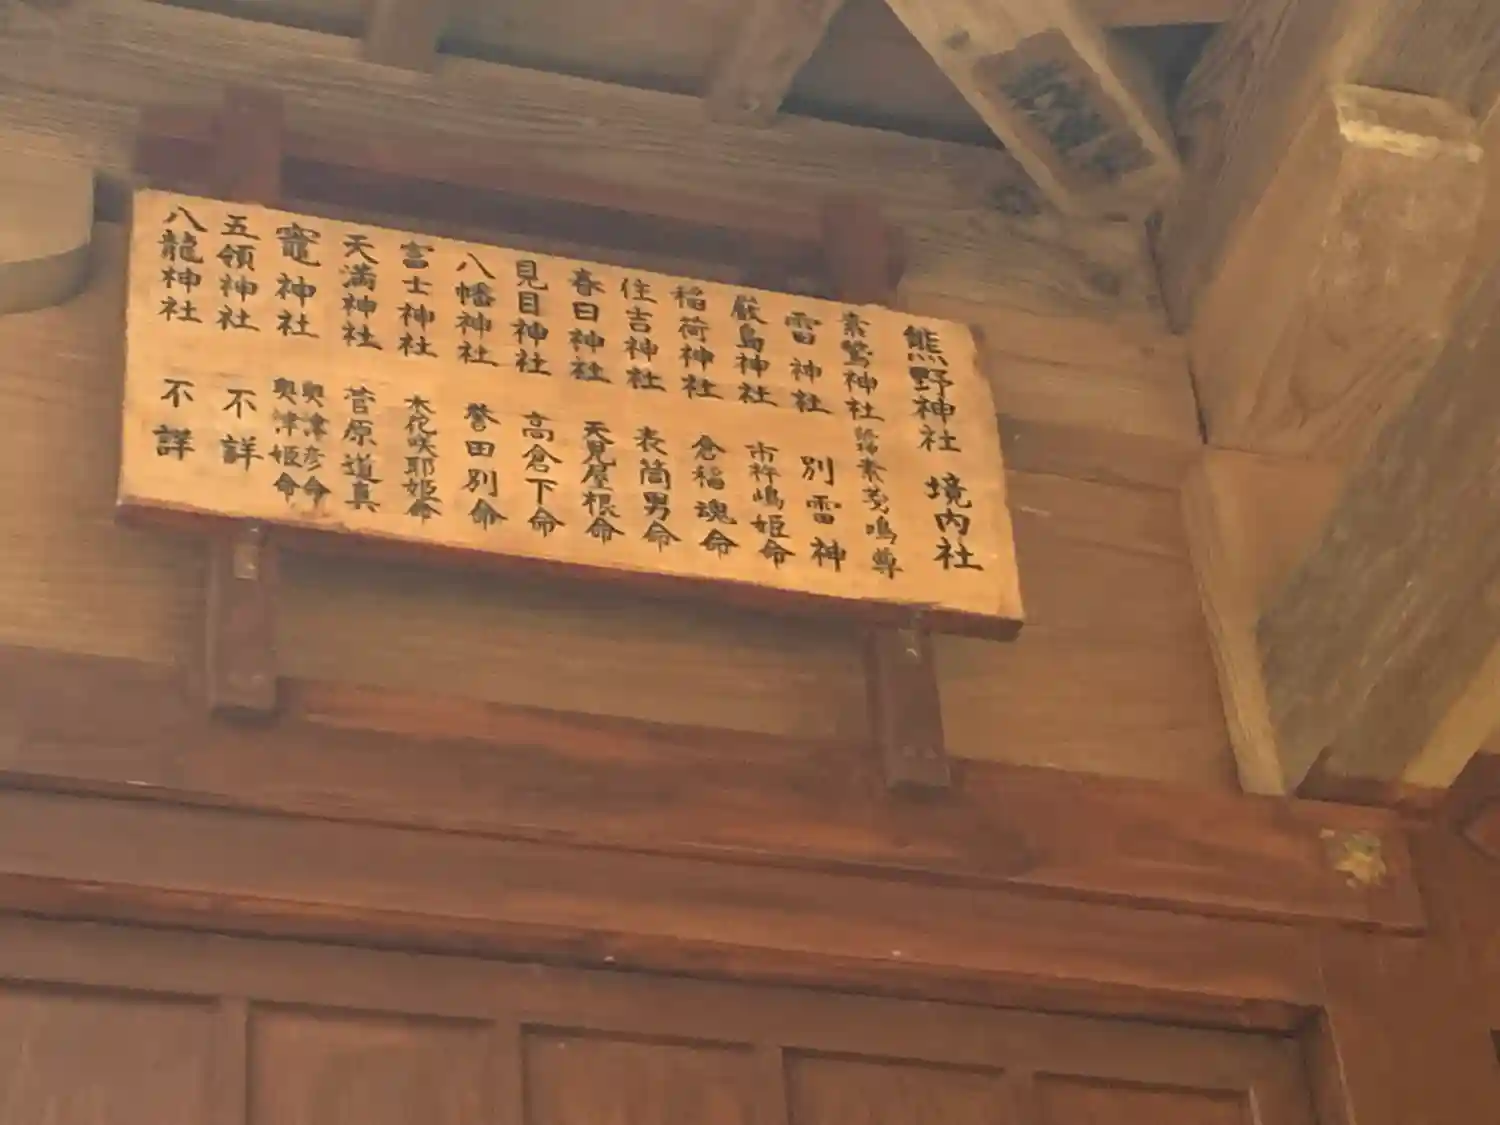 熊野神社 境内社
素鵞神社 素戔嗚尊
雷神社 別雷神
厳島神社 市杵嶋姫命
稲荷神社 倉稲魂命
住吉神社 表筒男命
春日神社 天児屋根命
見目神社 高倉下命
八幡神社 誉田別命
富士神社 木花咲耶姫命
天満神社 菅原道真
竈神社 奥津彦命
奥津姫命
五領神社 不詳
八龍神社 不詳